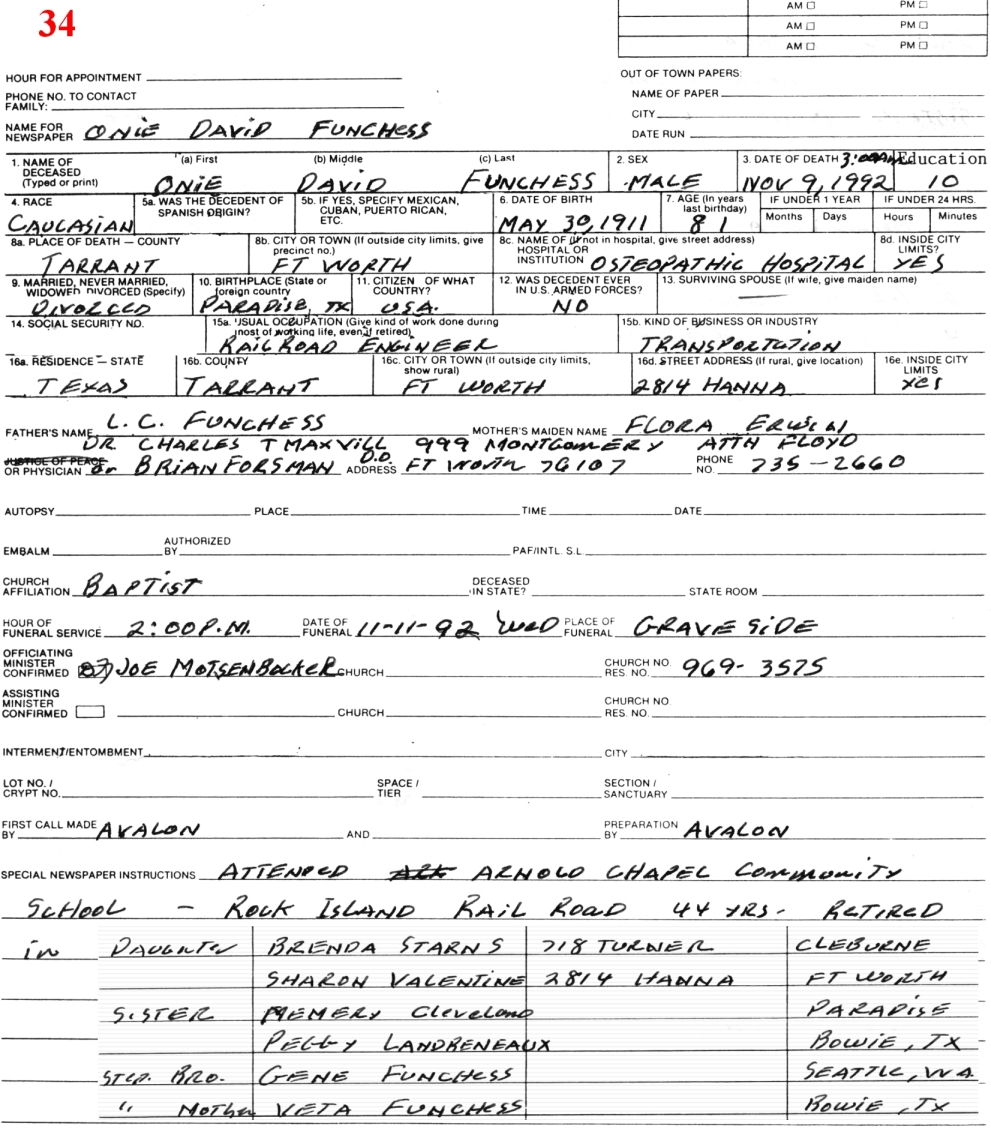 34
AM □ PM □
AM □ PM □
AM □ PM □
HOUR FOR APPOINTMENT
OUT OF TOWN PAPERS:
PHONE NO. TO CONTACT
FAMILY:
NAME OF PAPER
CITY
NAME FOR
NEWSPAPER ONIE DAVID FUNCHESS
DATE RUN
1. NAME OF DECEASED (Typed or print) (a) First (b) Middle (c) Last 2. SEX 3. DATE OF DEATH 3:00AM Education
ONIE DAVID FUNCHESS MALE NOV 9, 1992 10
4. RACE 5a. WAS THE DECEDENT OF SPANISH ORIGIN? 5b. IF YES, SPECIFY MEXICAN, CUBAN, PUERTO RICAN, ETC. 6. DATE OF BIRTH 7. AGE (In years last birthday) IF UNDER 1 YEAR IF UNDER 24 HRS.
Months Days Hours Minutes
CAUCASIAN MAY 30, 1911 81
8a. PLACE OF DEATH — COUNTY 8b. CITY OR TOWN (If outside city limits, give precinct no.) 8c. NAME OF (If not in hospital, give street address) HOSPITAL OR INSTITUTION 8d. INSIDE CITY LIMITS?
TARRANT FT WORTH OSTEOPATHIC HOSPITAL YES
9. MARRIED, NEVER MARRIED, WIDOWED DIVORCED (Specify) 10. BIRTHPLACE (State or foreign country 11. CITIZEN OF WHAT COUNTRY? 12. WAS DECEDENT EVER IN U.S. ARMED FORCES? 13. SURVIVING SPOUSE (If wife, give maiden name)
DIVORCED PARADISE, TX USA. NO —
14. SOCIAL SECURITY NO. 15a. USUAL OCCUPATION (Give kind of work done during most of working life, even if retired) 15b. KIND OF BUSINESS OR INDUSTRY
RAILROAD ENGINEER TRANSPORTATION
16a. RESIDENCE — STATE 16b. COUNTY 16c. CITY OR TOWN (If outside city limits, show rural) 16d. STREET ADDRESS (If rural, give location) 16e. INSIDE CITY LIMITS
TEXAS TARRANT FT WORTH 2814 HANNA YES
FATHER'S NAME L. C. FUNCHESS MOTHER'S MAIDEN NAME FLORA
DR CHARLES T MAXVILL 999 MONTGOMERY ATTN FLOYD
JUSTICE OF PEACE
OR PHYSICIAN or BRIAN FORSMAN D.O. ADDRESS FT WORTH 76107 PHONE NO. 735-2660
AUTOPSY PLACE TIME DATE
EMBALM AUTHORIZED BY PAF/INTL. S.L.
CHURCH AFFILIATION BAPTIST DECEASED IN STATE? STATE ROOM
HOUR OF FUNERAL SERVICE 2:00 P.M. DATE OF FUNERAL 11-11-92 WED PLACE OF FUNERAL GRAVE SIDE
OFFICIATING MINISTER CONFIRMED JOE MOTSENBOCKER CHURCH CHURCH NO. RES. NO. 969-3575
ASSISTING MINISTER CONFIRMED CHURCH CHURCH NO. RES. NO.
INTERMENT/ENTOMBMENT CITY
LOT NO. / CRYPT NO. SPACE / TIER SECTION / SANCTUARY
FIRST CALL MADE BY AVALON AND PREPARATION BY AVALON
SPECIAL NEWSPAPER INSTRUCTIONS ATTENDED ARNOLD CHAPEL COMMUNITY
SCHOOL — ROCK ISLAND RAIL ROAD 44 YRS - RETIRED
in DAUGHTER BRENDA STARNS 718 TURNER CLEBURNE
SHARON VALENTINE 2814 HANNA FT WORTH
SISTER MEMERY Cleveland PARADISE
PEGGY LANDRENEAUX BOWIE, TX
STEP. BRO. GENE FUNCHESS SEATTLE, WA
" Mother VETA FUNCHESS BOWIE, TX